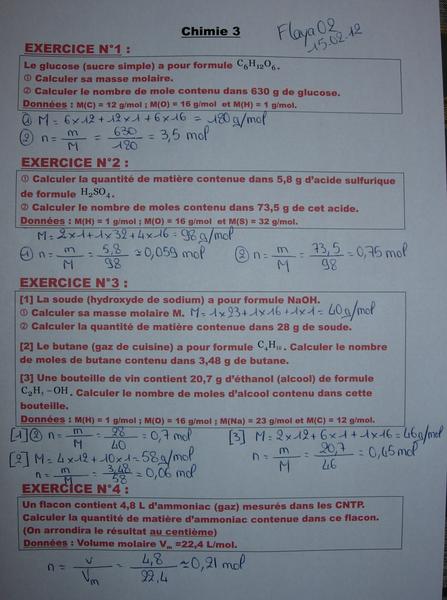 Chimie 3
Flaya02
15.02.12
EXERCICE N°1 :
Le glucose (sucre simple) a pour formule C₆H₁₂O₆.
① Calculer sa masse molaire.
② Calculer le nombre de mole contenu dans 630 g de glucose.
Données : M(C) = 12 g/mol ; M(O) = 16 g/mol et M(H) = 1 g/mol.
① M = 6x12 + 12x1 + 6x16 = 180 g/mol
② n = m/M = 630/180 = 3,5 mol
EXERCICE N°2 :
① Calculer la quantité de matière contenue dans 5,8 g d'acide sulfurique
de formule H₂SO₄.
② Calculer le nombre de moles contenu dans 73,5 g de cet acide.
Données : M(H) = 1 g/mol ; M(O) = 16 g/mol et M(S) = 32 g/mol.
M = 2x1 + 1x32 + 4x16 = 98 g/mol
① n = m/M = 5,8/98 ≈ 0,059 mol ② n = m/M = 73,5/98 = 0,75 mol
EXERCICE N°3 :
[1] La soude (hydroxyde de sodium) a pour formule NaOH.
① Calculer sa masse molaire M. M = 1x23 + 1x16 + 1x1 = 40 g/mol
② Calculer la quantité de matière contenue dans 28 g de soude.
[2] Le butane (gaz de cuisine) a pour formule C₄H₁₀. Calculer le nombre
de moles de butane contenu dans 3,48 g de butane.
[3] Une bouteille de vin contient 20,7 g d'éthanol (alcool) de formule
C₂H₅-OH. Calculer le nombre de moles d'alcool contenu dans cette
bouteille.
Données : M(H) = 1 g/mol ; M(O) = 16 g/mol ; M(Na) = 23 g/mol et M(C) = 12 g/mol.
[1] ② n = m/M = 28/40 = 0,7 mol
[2] M = 4x12 + 10x1 = 58 g/mol
n = m/M = 3,48/58 = 0,06 mol
[3] M = 2x12 + 6x1 + 1x16 = 46 g/mol
n = m/M = 20,7/46 = 0,45 mol
EXERCICE N°4 :
Un flacon contient 4,8 L d'ammoniac (gaz) mesurés dans les CNTP.
Calculer la quantité de matière d'ammoniac contenue dans ce flacon.
(On arrondira le résultat au centième)
Données : Volume molaire Vₘ =22,4 L/mol.
n = v/Vₘ = 4,8/22,4 ≈ 0,21 mol